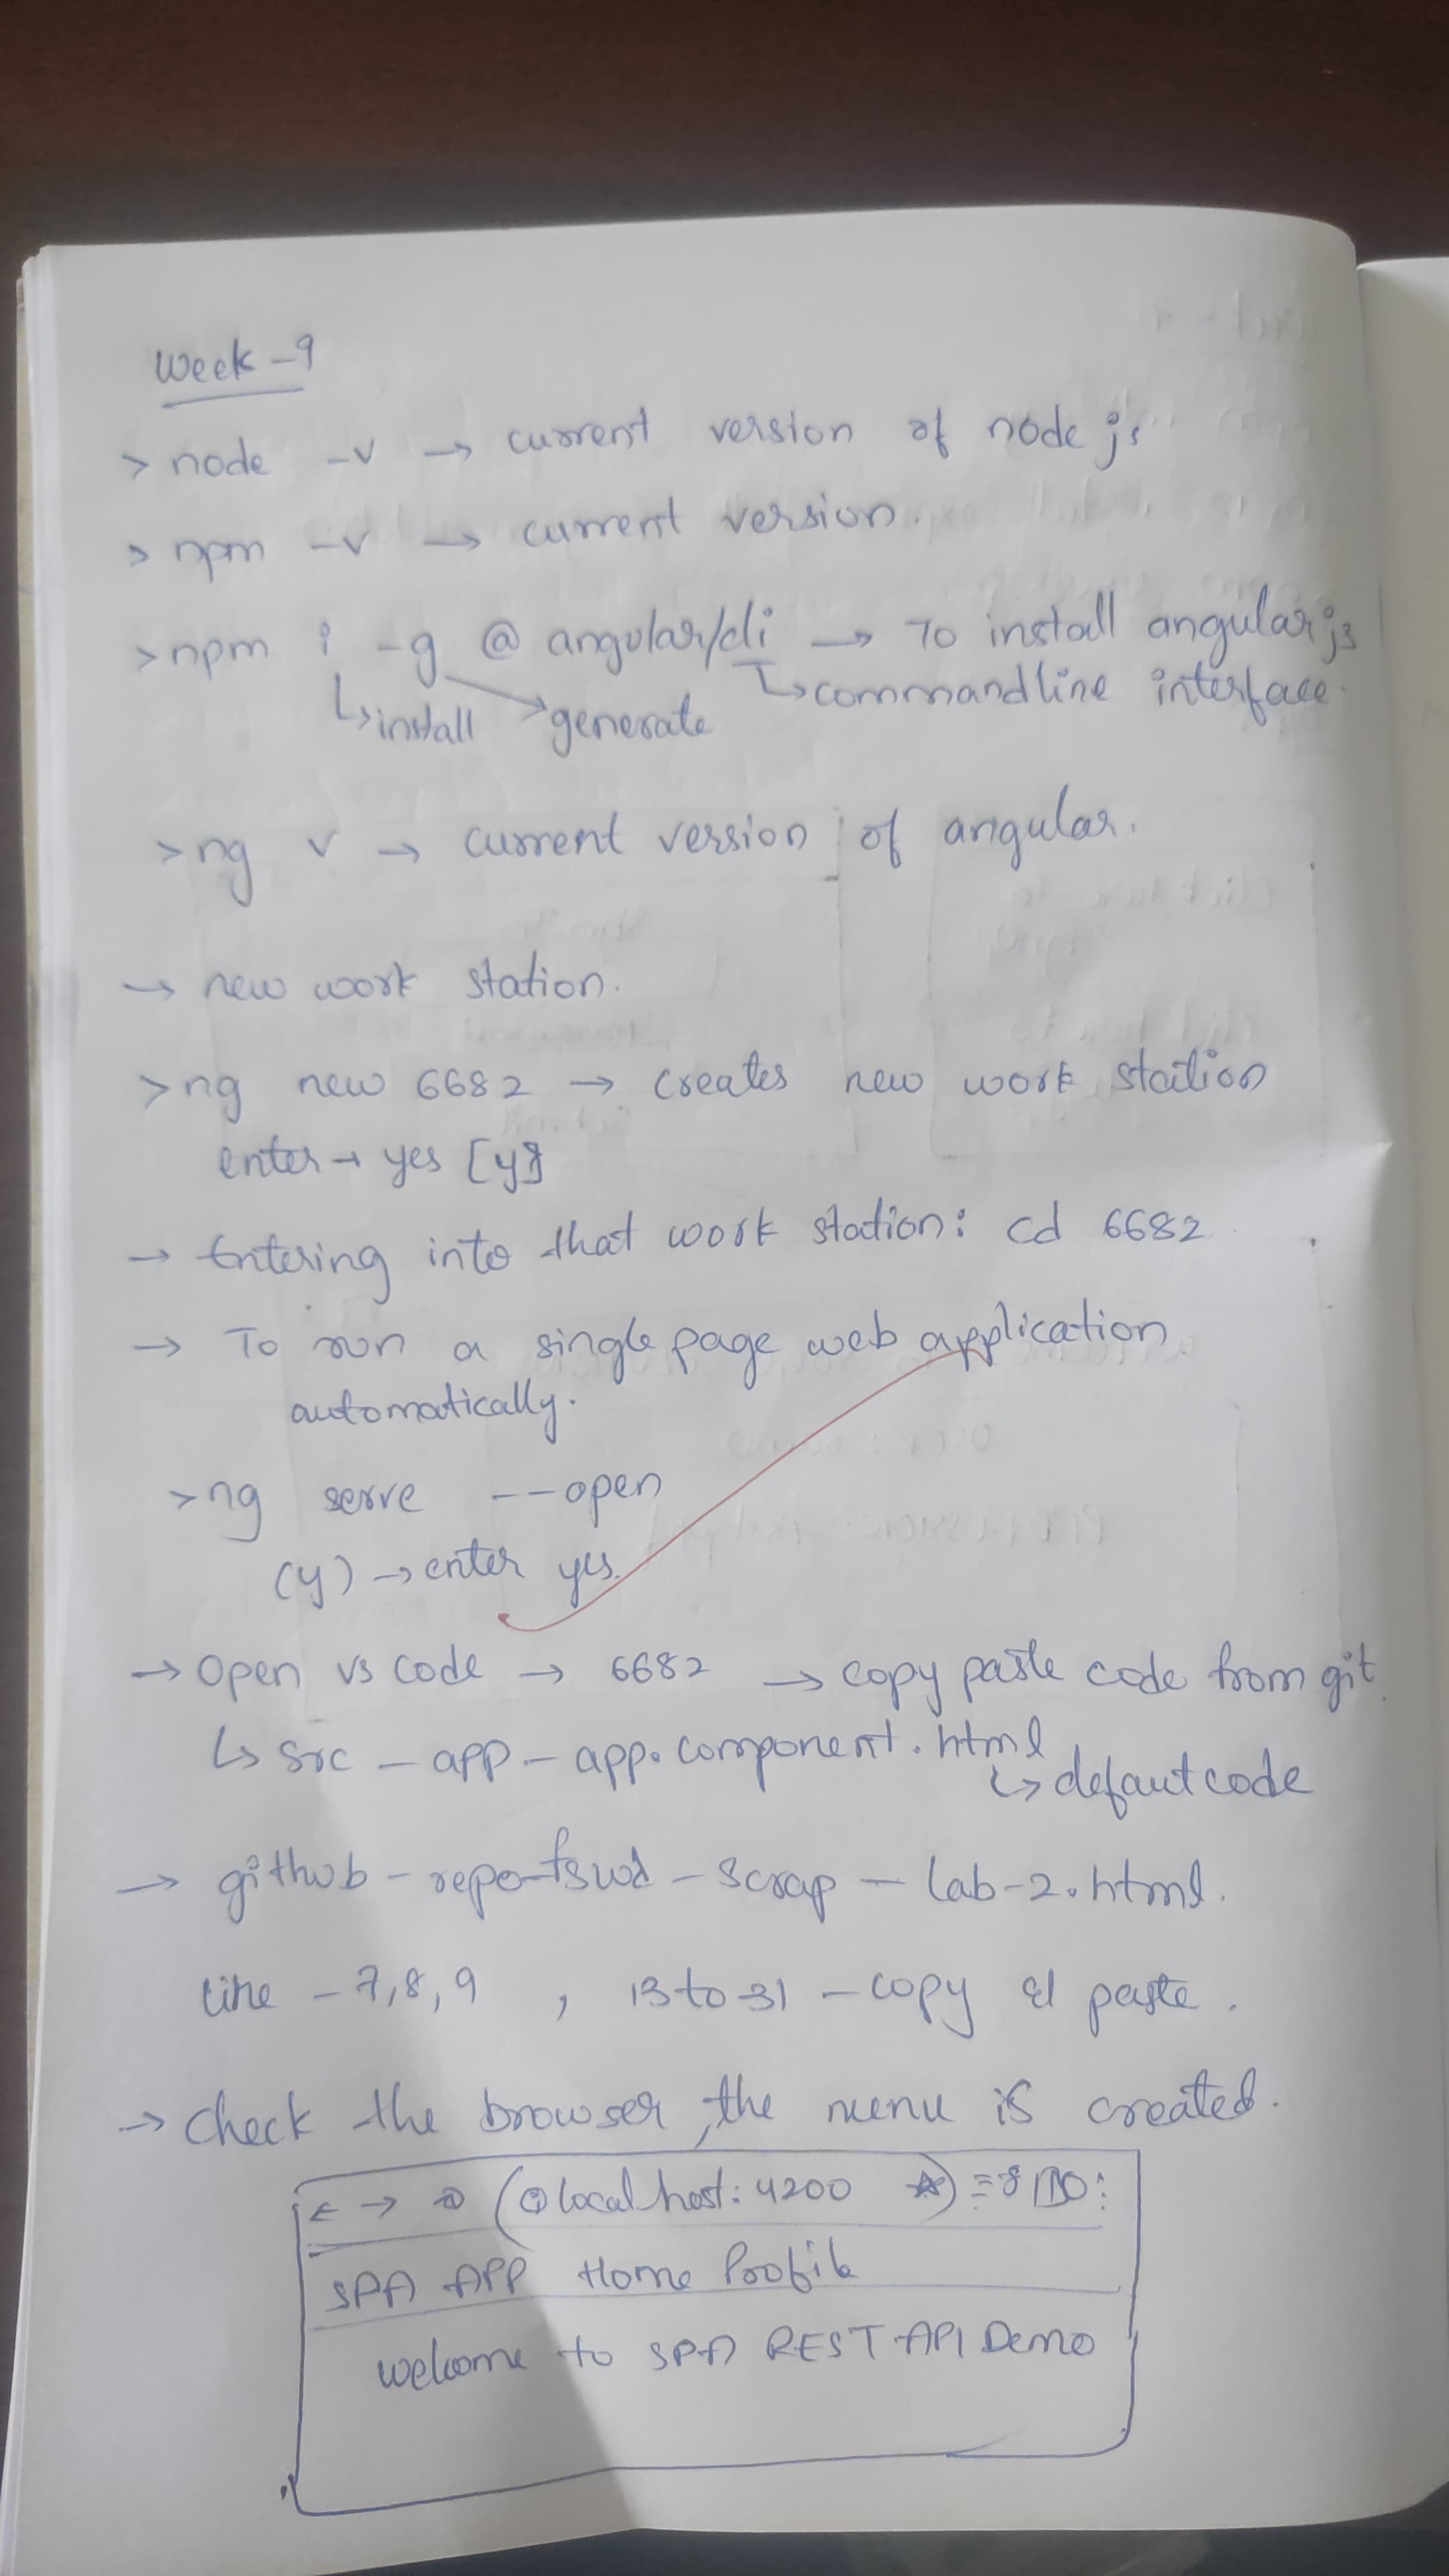 Week-9
> node -v → current version of node js
> npm -v → current version.
> npm i -g @ angular/cli → To install angular js
↳ install → generate ↳ commandline interface.
> ng v → current version of angular.
→ new work station.
> ng new 6682 → creates new work station
enter → yes [y]
→ Entering into that work station: cd 6682
→ To run a single page web application
automatically.
> ng serve --open
(y) → enter yes.
→ Open vs code → 6682 → copy paste code from git
↳ src - app - app.component.html
↳ defaut code
→ github - repo - fswd - scrap - lab-2.html.
Line - 7,8,9 , 13 to 31 - copy & paste.
→ check the browser, the menu is created.
← → (localhost: 4200 ☆)
SPA APP Home Profile
welcome to SPA REST API Demo